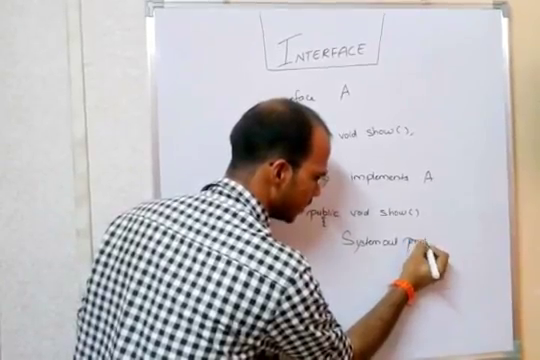 INTERFACE
eface A
void show();
implements A
public void show()
{
System.out